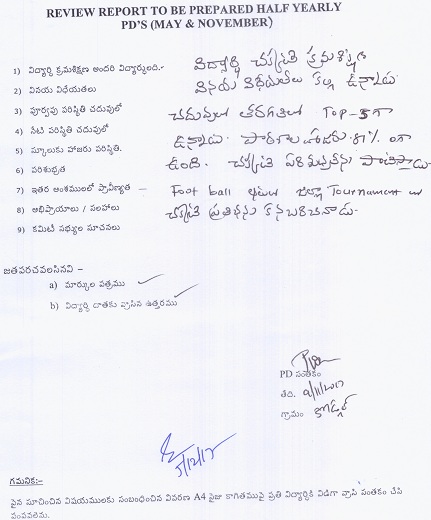 REVIEW REPORT TO BE PREPARED HALF YEARLY
PD'S (MAY & NOVEMBER)
1) విద్యార్థి క్రమశిక్షణ అందరి విద్యార్థులది.- విద్యార్థి చక్కనైతి క్రమశిక్షణ
2) వినయ విధేయతలు వినయ విధేయతలు కల్గి ఉన్నాడు.
3) పూర్వపు పరిస్థితి చదువులో చదువులో తరగతిలో TOP-5గా
4) నేటి పరిస్థితి చదువులో ఉన్నాడు. పాఠశాల హాజరు 81% గా
5) స్కూలుకు హాజరు పరిస్థితి.
6) పరిశుభ్రత ఉంది. చక్కటి పరిశుభ్రతను పాటిస్తాడు
7) ఇతర అంశములలో ప్రావీణ్యత — Foot ball ఆటలో జిల్లా Tournament లో
8) అభిప్రాయాలు / సలహాలు చక్కటి ప్రతిభను కనబరిచినాడు.
9) కమిటీ సభ్యుల సూచనలు
జతపరచవలసినవి –
a) మార్కుల పత్రము
b) విద్యార్థి దాతకు వ్రాసిన ఉత్తరము
PD సంతకం
తేది.
గ్రామం
5/12/12
గమనిక:-
పైన సూచించిన విషయములకు సంబంధించిన వివరణ A4 సైజు కాగితముపై ప్రతి విద్యార్థికి విడిగా వ్రాసి సంతకం చేసి
పంపవలెను.